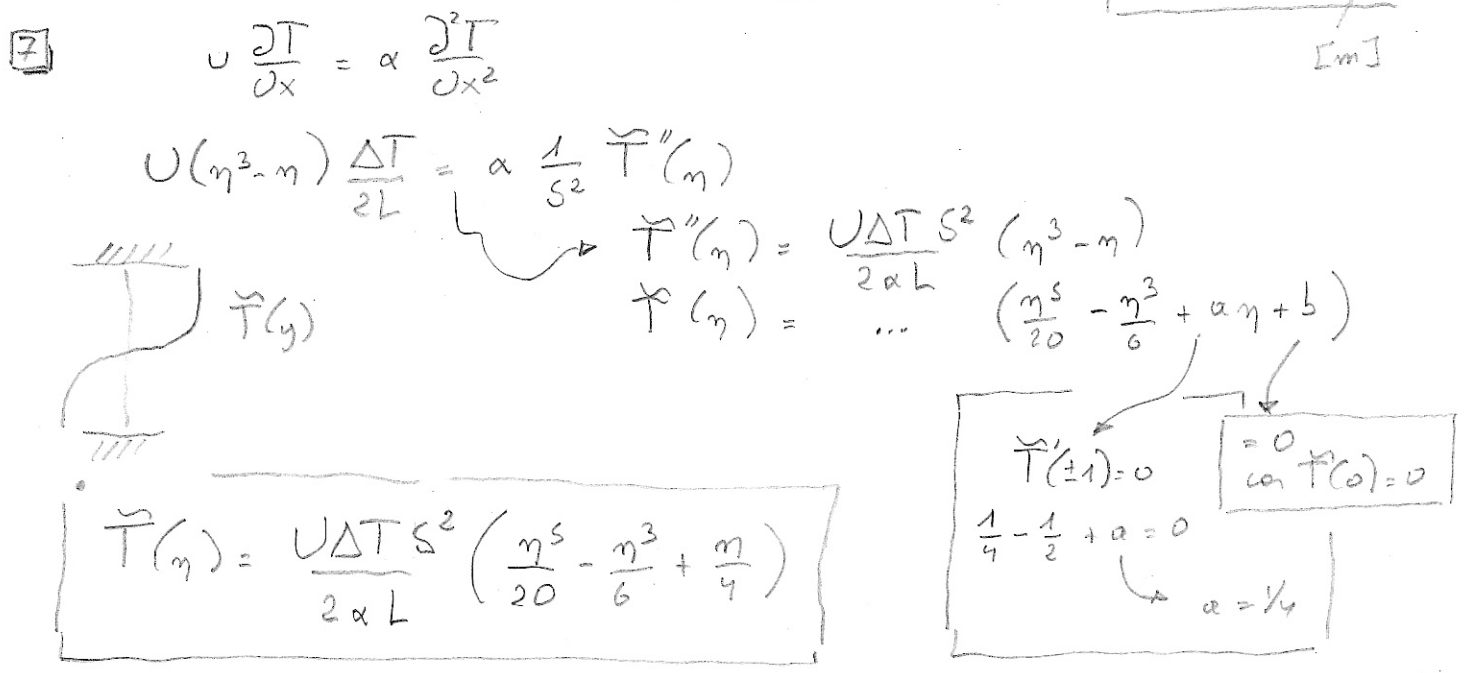 7
u ∂T/∂x = α ∂²T/∂x²
[m]
U(η³-η) ΔT/2L = α 1/S² T̆″(η)
T̆″(η) = UΔT S²/2αL (η³-η)
T̆(η) = ... (η⁵/20 - η³/6 + aη + b)
T̆(y)
T̆′(±1)=0
= 0
con T̆(0)=0
1/4 - 1/2 + a = 0
a = 1/4
T̆(η) = UΔT S²/2αL (η⁵/20 - η³/6 + η/4)